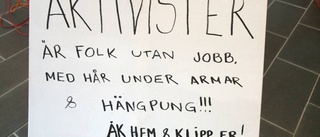 AKTIVISTER
ÄR FOLK UTAN JOBB,
MED HÅR UNDER ARMAR
& HÄNGPUNG!!!
ÅK HEM & KLIPP ER!